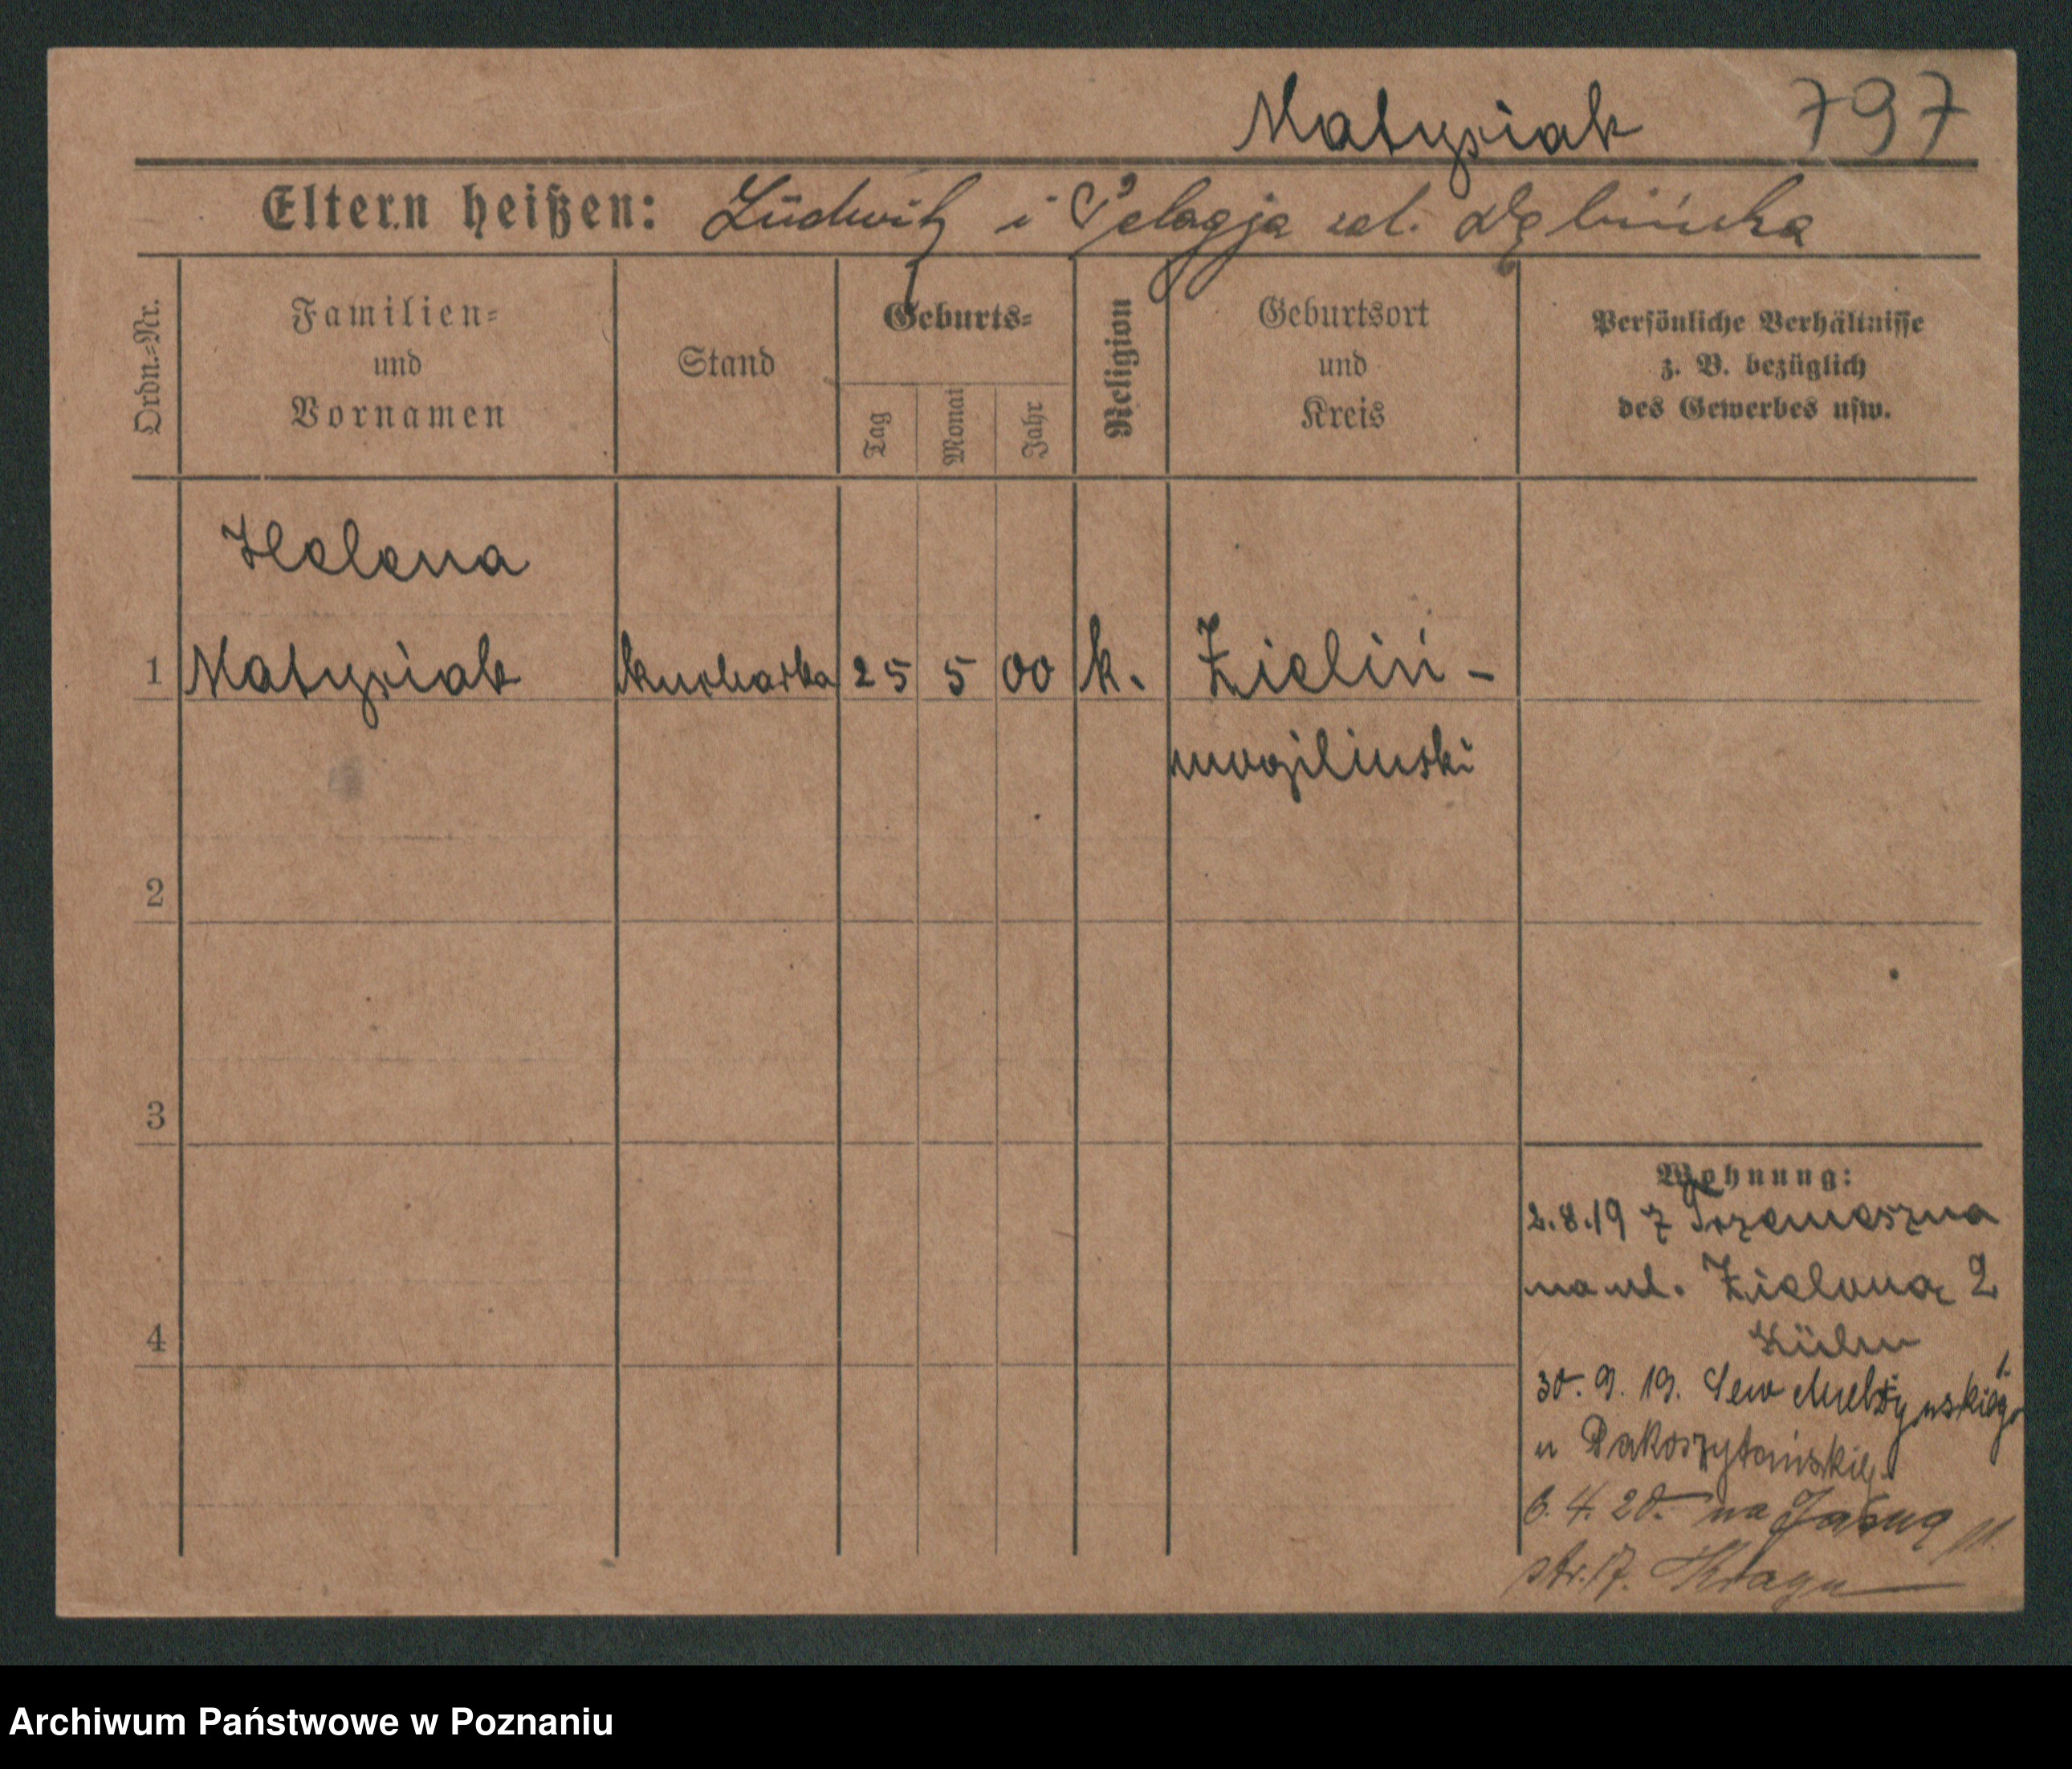 Matysiak 797
Eltern heißen: Ludwik i Pelagja Dębińska
Ordn.-Nr.
Familien-
und
Vornamen
Stand
Geburts-
Tag
Monat
Jahr
Religion
Geburtsort
und
Kreis
Persönliche Verhältnisse
z. B. bezüglich
des Gewerbes usw.
Helena
1 Matysiak kucharka 25 5 00 k. Zieliń-
mogilinski
2
3
4
Wohnung:
2.8.19 z Trzemeszna
na ul. Zieloną 2
Kühn
30. 9. 19. Sew Mielżynskiego
u
6. 4. 20. na Jasną
str. 17.
Archiwum Państwowe w Poznaniu